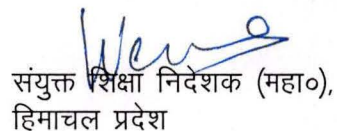 संयुक्त शिक्षा निदेशक (महा०),
हिमाचल प्रदेश